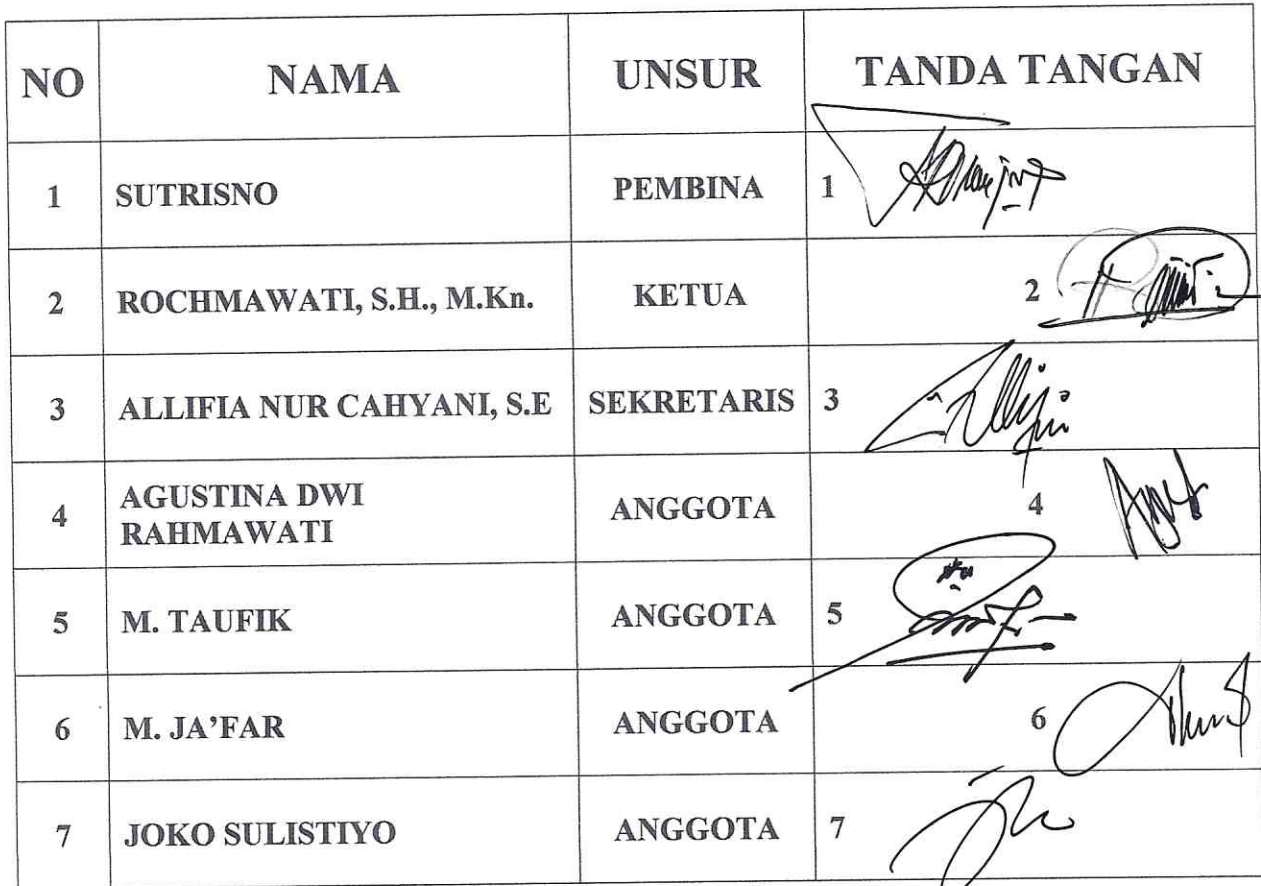 NO NAMA UNSUR TANDA TANGAN
1 SUTRISNO PEMBINA 1
2 ROCHMAWATI, S.H., M.Kn. KETUA 2
3 ALLIFIA NUR CAHYANI, S.E SEKRETARIS 3
4 AGUSTINA DWI RAHMAWATI ANGGOTA 4
5 M. TAUFIK ANGGOTA 5
6 M. JA’FAR ANGGOTA 6
7 JOKO SULISTIYO ANGGOTA 7